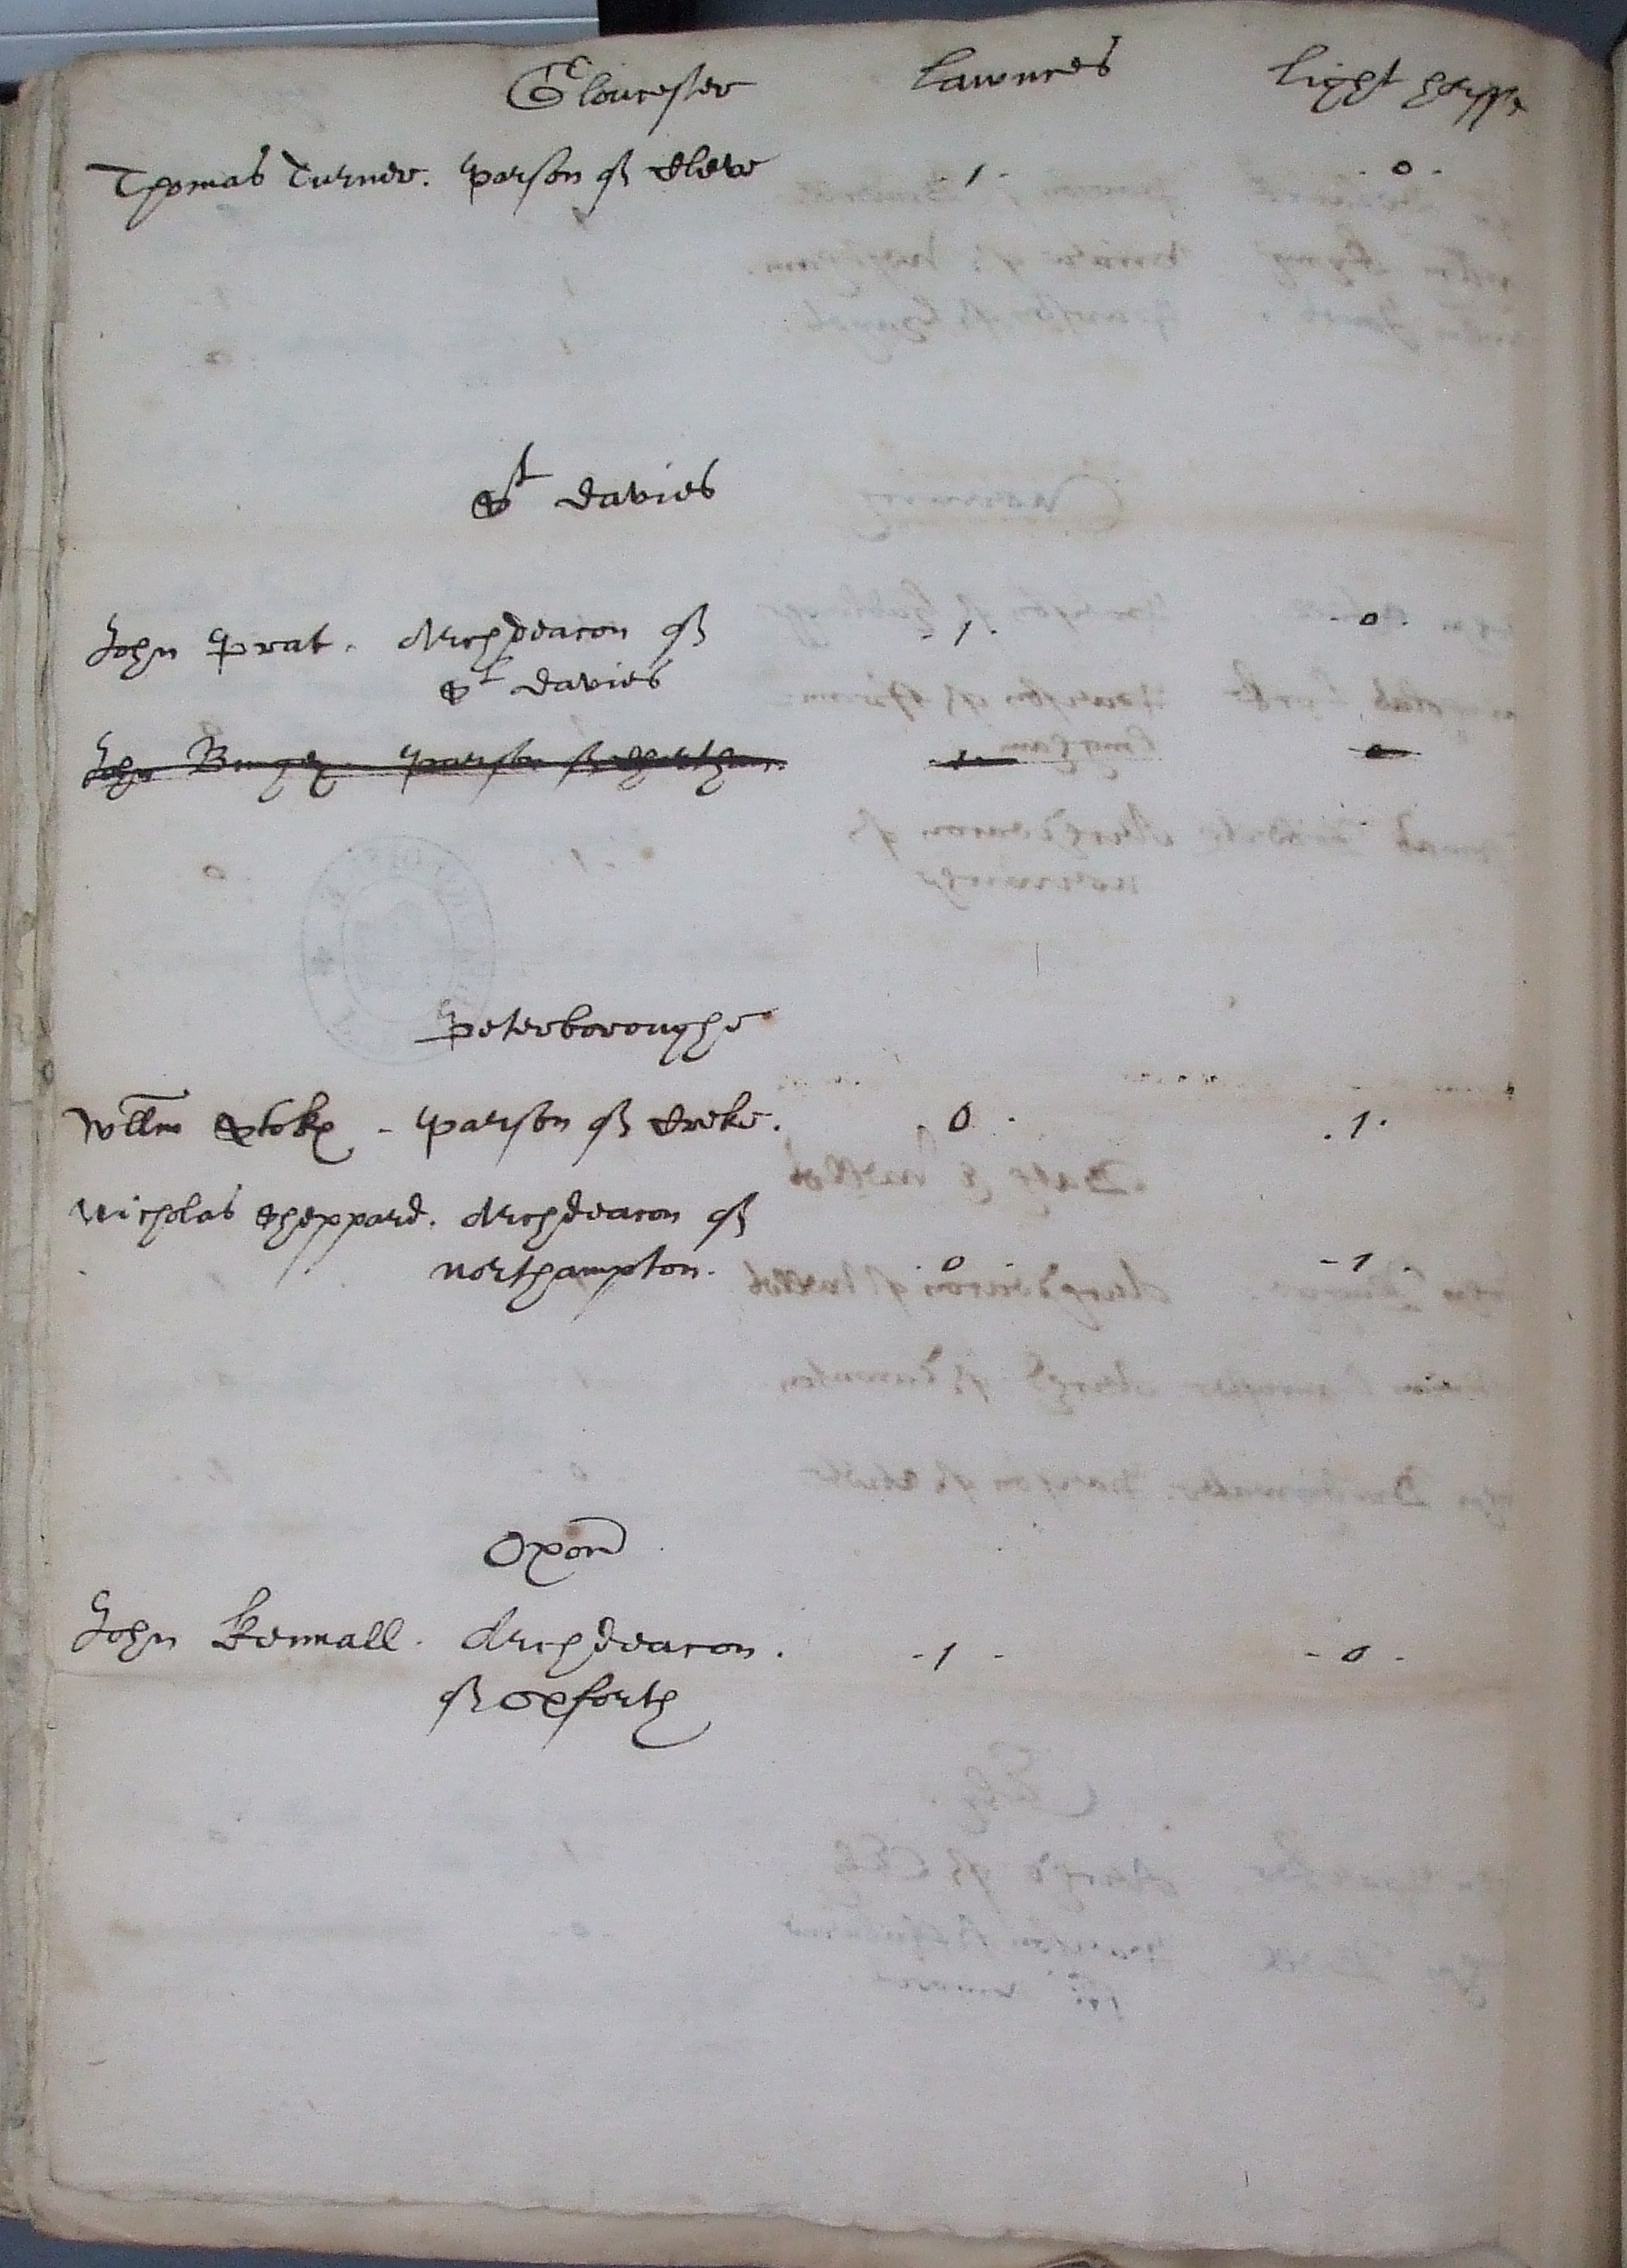 Gloucester launces light horsse
Thomas Turner. parson of Cleve .1. .0.
St Davies
John Prat. Archdeacon of -1. -0.
St Davies
John parson of 1. 0
Peterboroughe
Willm Stoke - parson of Creke. .0. .1.
Nicholas Sheppard. Archdeacon of
Northampton. .0. -1.
Oxon
John Kennall. Archdeacon. -1- -0-
of Oxforth